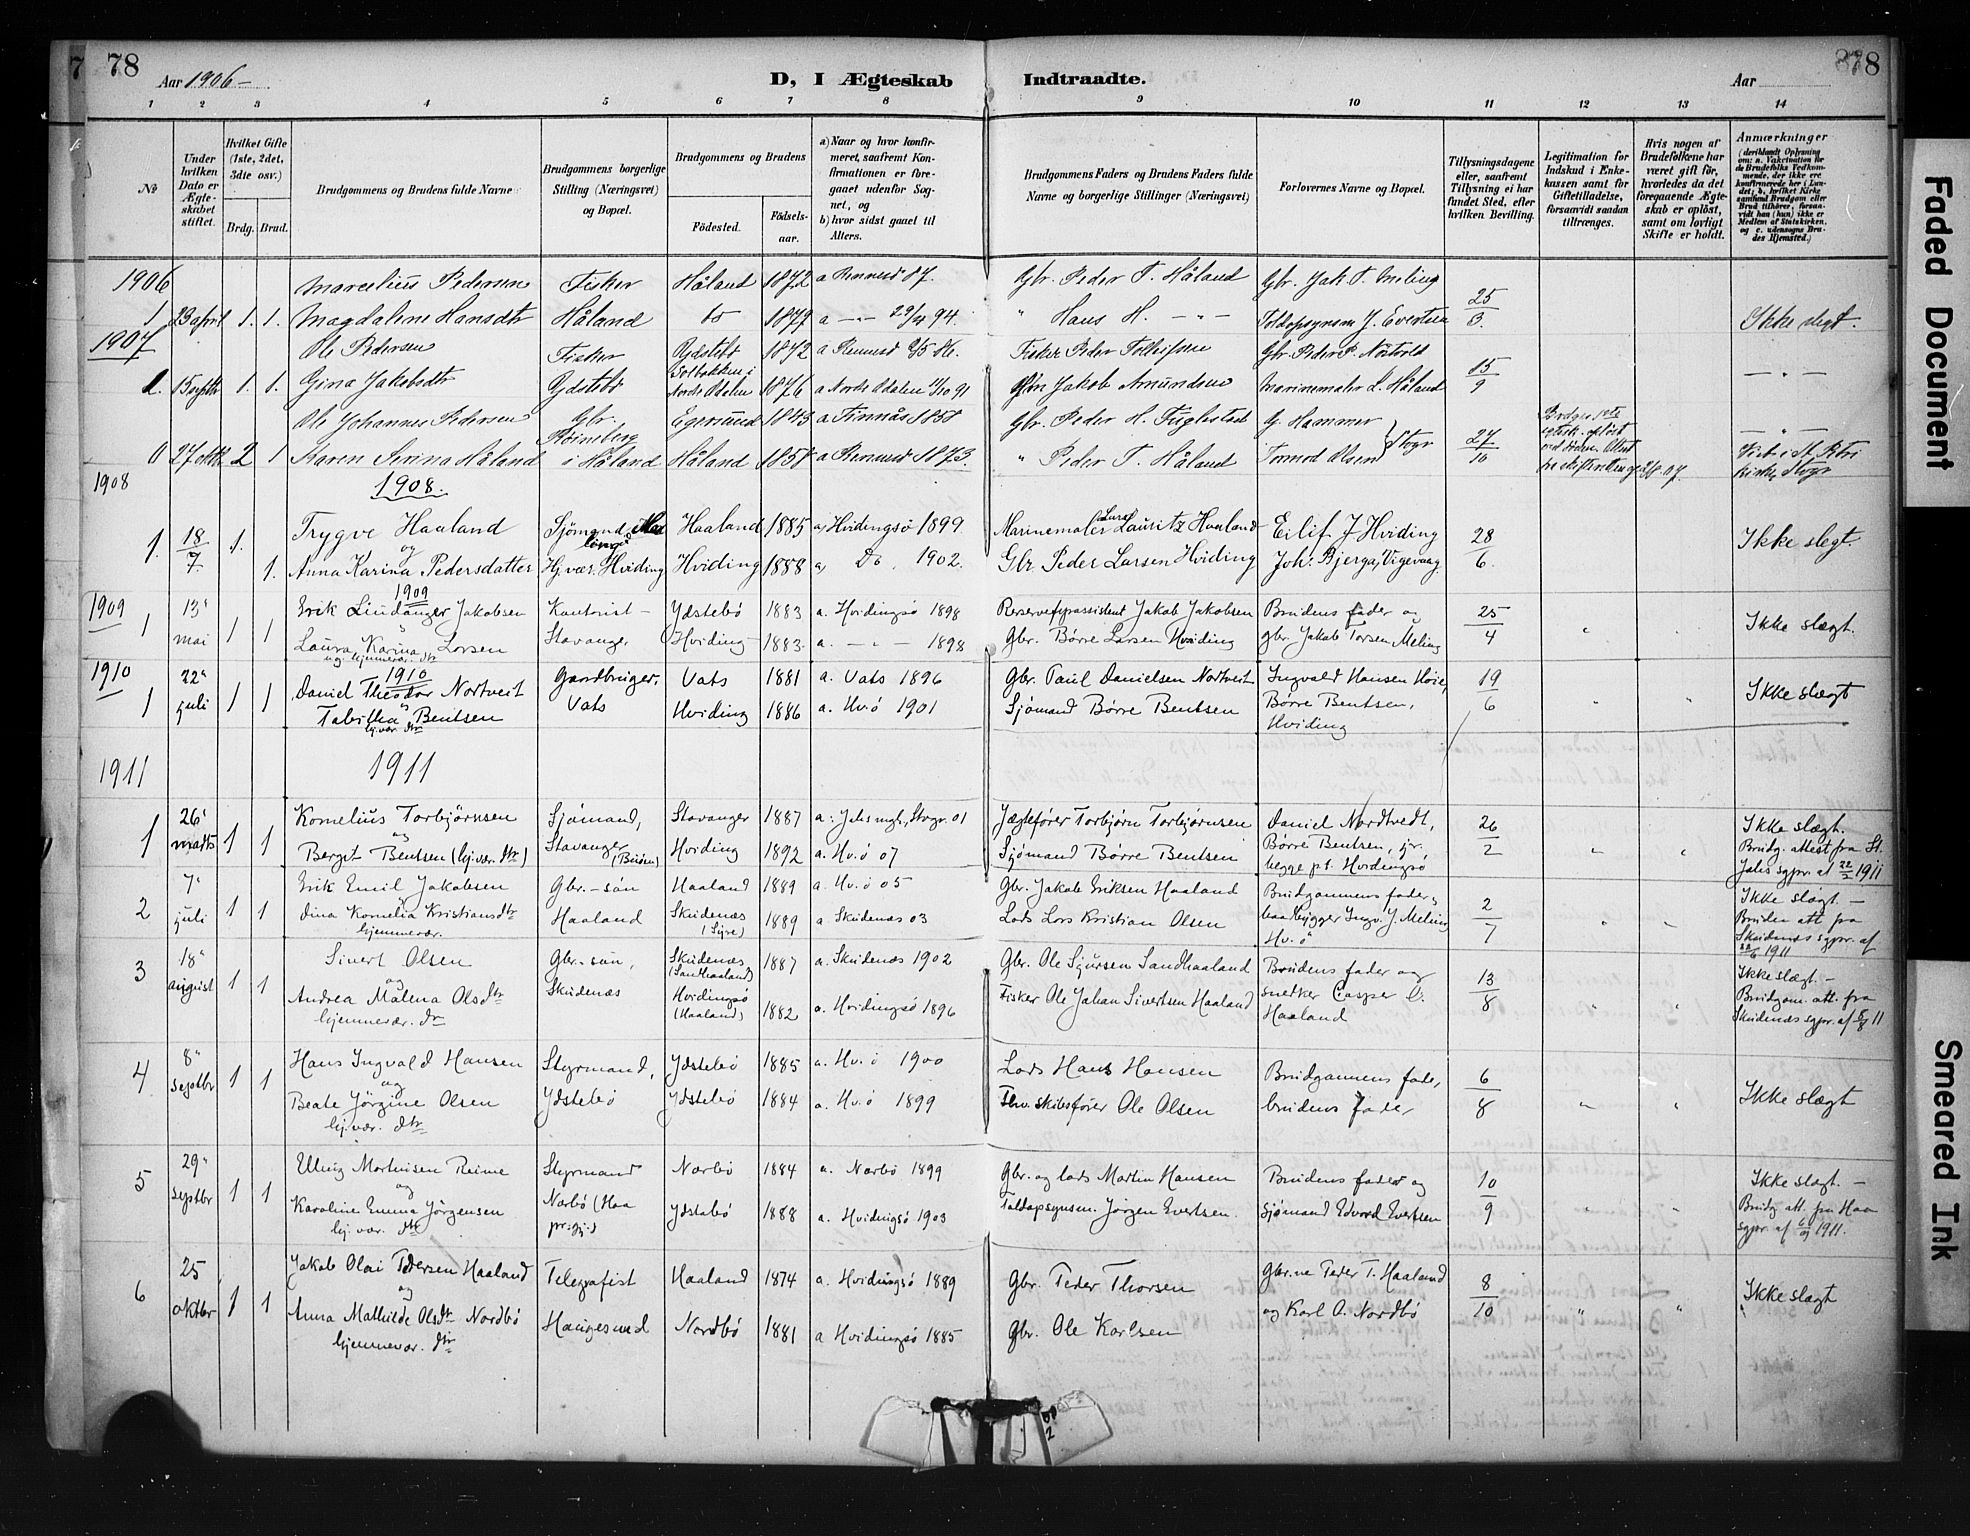 78
Aar 1906 –
D, I Ægteskab Indtraadte.
Aar
78
1 2 3 4 5 6 7 8 9 10 11 12 13 14
No
Under hvilken Dato er Ægteskabet stiftet.
Hvilket Gifte (1ste, 2det, 3dte osv.)
Brdg. Brud.
Brudgommens og Brudens fulde Navne
Brudgommens borgerlige Stilling (Næringsvei) og Bopæl.
Brudgommens og Brudens
Fødested.
Fødselsaar.
a) Naar og hvor konfirmeret, saafremt Konfirmationen er foregaaet udenfor Sognet, og
b) hvor sidst gaaet til Alters.
Brudgommens Faders og Brudens Faders fulde Navne og borgerlige Stillinger (Næringsvei)
Forlovernes Navne og Bopæl.
Tillysningsdagene eller, saafremt Tillysning ei har fundet Sted, efter hvilken Bevilling.
Legitimation for Indskud i Enkekassen samt for Giftetilladelse, forsaavidt saadan tiltrænges.
Hvis nogen af Brudefolkene har været gift før, hvorledes da det foregaaende Ægteskab er opløst, samt om lovligt Skifte er holdt.
Anmærkninger
1906 Marcelius Pedersen Fisker Håland 1872 a Rennesø 87. Gbr. Peder T. Håland Gbr. Jak. T. Meling 25
1 23 april 1. 1. Magdalene Hansdtr Håland do 1879 a – " – 94. " Hans H. – " – Toldopsynsm J. Evertsen 3. Ikke slegt.
1907 Ole Pedersen Fisker Ydstebø 1872 a Rennesø 86. Fisker Peder Gbr. Peder P. 15
1. 15 septbr 1. 1. Gina Jakobsdtr Ydstebø Nordr Odalen 1876 a Nordr Odalen 91 Jakob Amundsen Marinemaler L. Håland 9 – " –
Ole Johannes Pedersen Gbr. Egersund 1843 a Finnås 1858 Gbr. Peder H. Fuglestad G. Hammer 27
27 2 1 Karen Serina Håland i Håland Håland 1858 a Rennesø 1873. " Peder T. Håland Tormod Olsen Stvgr 10
1908 1908.
1. 18/7. 1. Trygve Haaland Sjömand Haaland 1885 a, Hvidingsö 1899. Marinemaler Lauritz Haaland Eilif J Hviding 28 Ikke slegt.
og
1. Anna Karina Pedersdatter Hj.vær. Hviding Hviding 1888 a, Do. 1902. Gbr Peder Larsen Hviding Joh. Bjerga, Vigevaag. 6.
1909 1909
1 13' mai 1 1 Erik Lindanger Jakobsen Kontorist – Ydstebø 1883 a. Hvidingsø 1898 Reservefyrassistent Jakob Jakobsen Brudens fader og 25
Laura Karina Larsen Stavanger Hviding 1883. a. – " – 1898 Gbr. Børre Larsen Hviding gbr. Jakob Torsen Meling 4 " Ikke slægt.
ug. hjemmevær. dtr
1910 1910
1 22' juli 1 1 Daniel Theodor Nortveit Gaardbruger, Vats 1881 a. Vats 1896 Gbr. Paul Danielsen Nortveit Ingvald Hansen Høie, 19 Ikke slægt
Tabitha Bentsen Vats Hviding 1886 a. Hv.ø 1901 Sjømand Børre Bentsen Børre Bentsen, 6 " "
hj.vær. dtr Hviding
1911 1911
1 26' marts 1 1 Kornelius Torbjørnsen Sjømand, Stavanger 1887 a: Johs mgh., Stvgr. 01 Jægtefører Torbjørn Torbjørnsen Daniel Nordtvedt, 26 Ikke slægt.
og
Bergit Bentsen (hj.vær. dtr) Stavanger Hviding 1892 a. Hv.ø 07 Sjømand Børre Bentsen Børre Bentsen, jr. 2 " " Brudg. attest fra St.
begge p.t. Hvidingsø Johs sgpr. af 22/2 1911
2 7' juli 1 1 Erik Emil Jakobsen Gbr. – søn Haaland 1889 a. Hv.ø 05 Gbr. Jakob Eriksen Haaland Brudgommens fader, 2 Ikke slægt. –
Dina Kornelia Kristiansdtr Haaland Skudenæs (Syre) 1889 a Skudenæs 03 Lods Lars Kristian Olsen baadbygger Ingv. J. Meling 7 " " Bruden att fra
hjemmevær. Hv.ø Skudenæs sgpr. af 22/6 1911
3 18' august 1 1 Sivert Olsen Gbr. – søn, Skudenæs (Sandhaaland) 1887 a. Skudenæs 1902 Gbr. Ole Sjursen Sandhaaland Brudens fader og 13 Ikke slægt. –
og
Andrea Malena Olsdtr Skudenæs Hvidingsø (Haaland) 1882 a. Hvidingsø 1896 Fisker Ole Johan Sivertsen Haaland snedker Casper C. Haaland 8 " " Brudgom. att. fra
hjemmevær. dtr Skudenæs sgpr. af 5/8 11
4 8' septbr 1 1 Hans Ingvald Hansen Styrmand, Ydstebø 1885 a. Hv.ø 1900 Lods Hans Hansen Brudgommens fader, 6 Ikke slægt
og
Beate Jørgine Olsen Ydstebø Ydstebø 1884 a. Hv.ø 1899 Fhv. skibsfører Ole Olsen brudens fader 8 " "
hj.vær. dtr
5 29' septbr 1 1 Elling Martinsen Reime Styrmand Narbø 1884 a. Narbø 1899 Gbr. og lods Martin Hansen Brudens fader og 10 Ikke slægt. –
og
Karoline Emma Jørgensen Narbø (Haa pr.gj.) Ydstabø 1888 a. Hvidingsø 1903 Toldopsynsm. Jørgen Evertsen. sjømand Edvard Evertsen 9 " " Brudg att. fra Haa
hj.vær. dtr sgpr. af 6/9 1911.
6 25 oktbr 1 1 Jakob Olai Pedersen Haaland Telegrafist Haaland 1874 a. Hvidingsø 1889 Gbr. Peder Thorsen Gbr.ne Peder T. Haaland 8 Ikke slægt
og
Anna Mathilde Olsdtr Nordbø Haugesund Nordbø 1881 a Hvidingsø 1885 Gbr. Ole Karlsen og Karl O. Nordbø 10 " "
hjemmevær. dtr
Faded Document
Smeared Ink